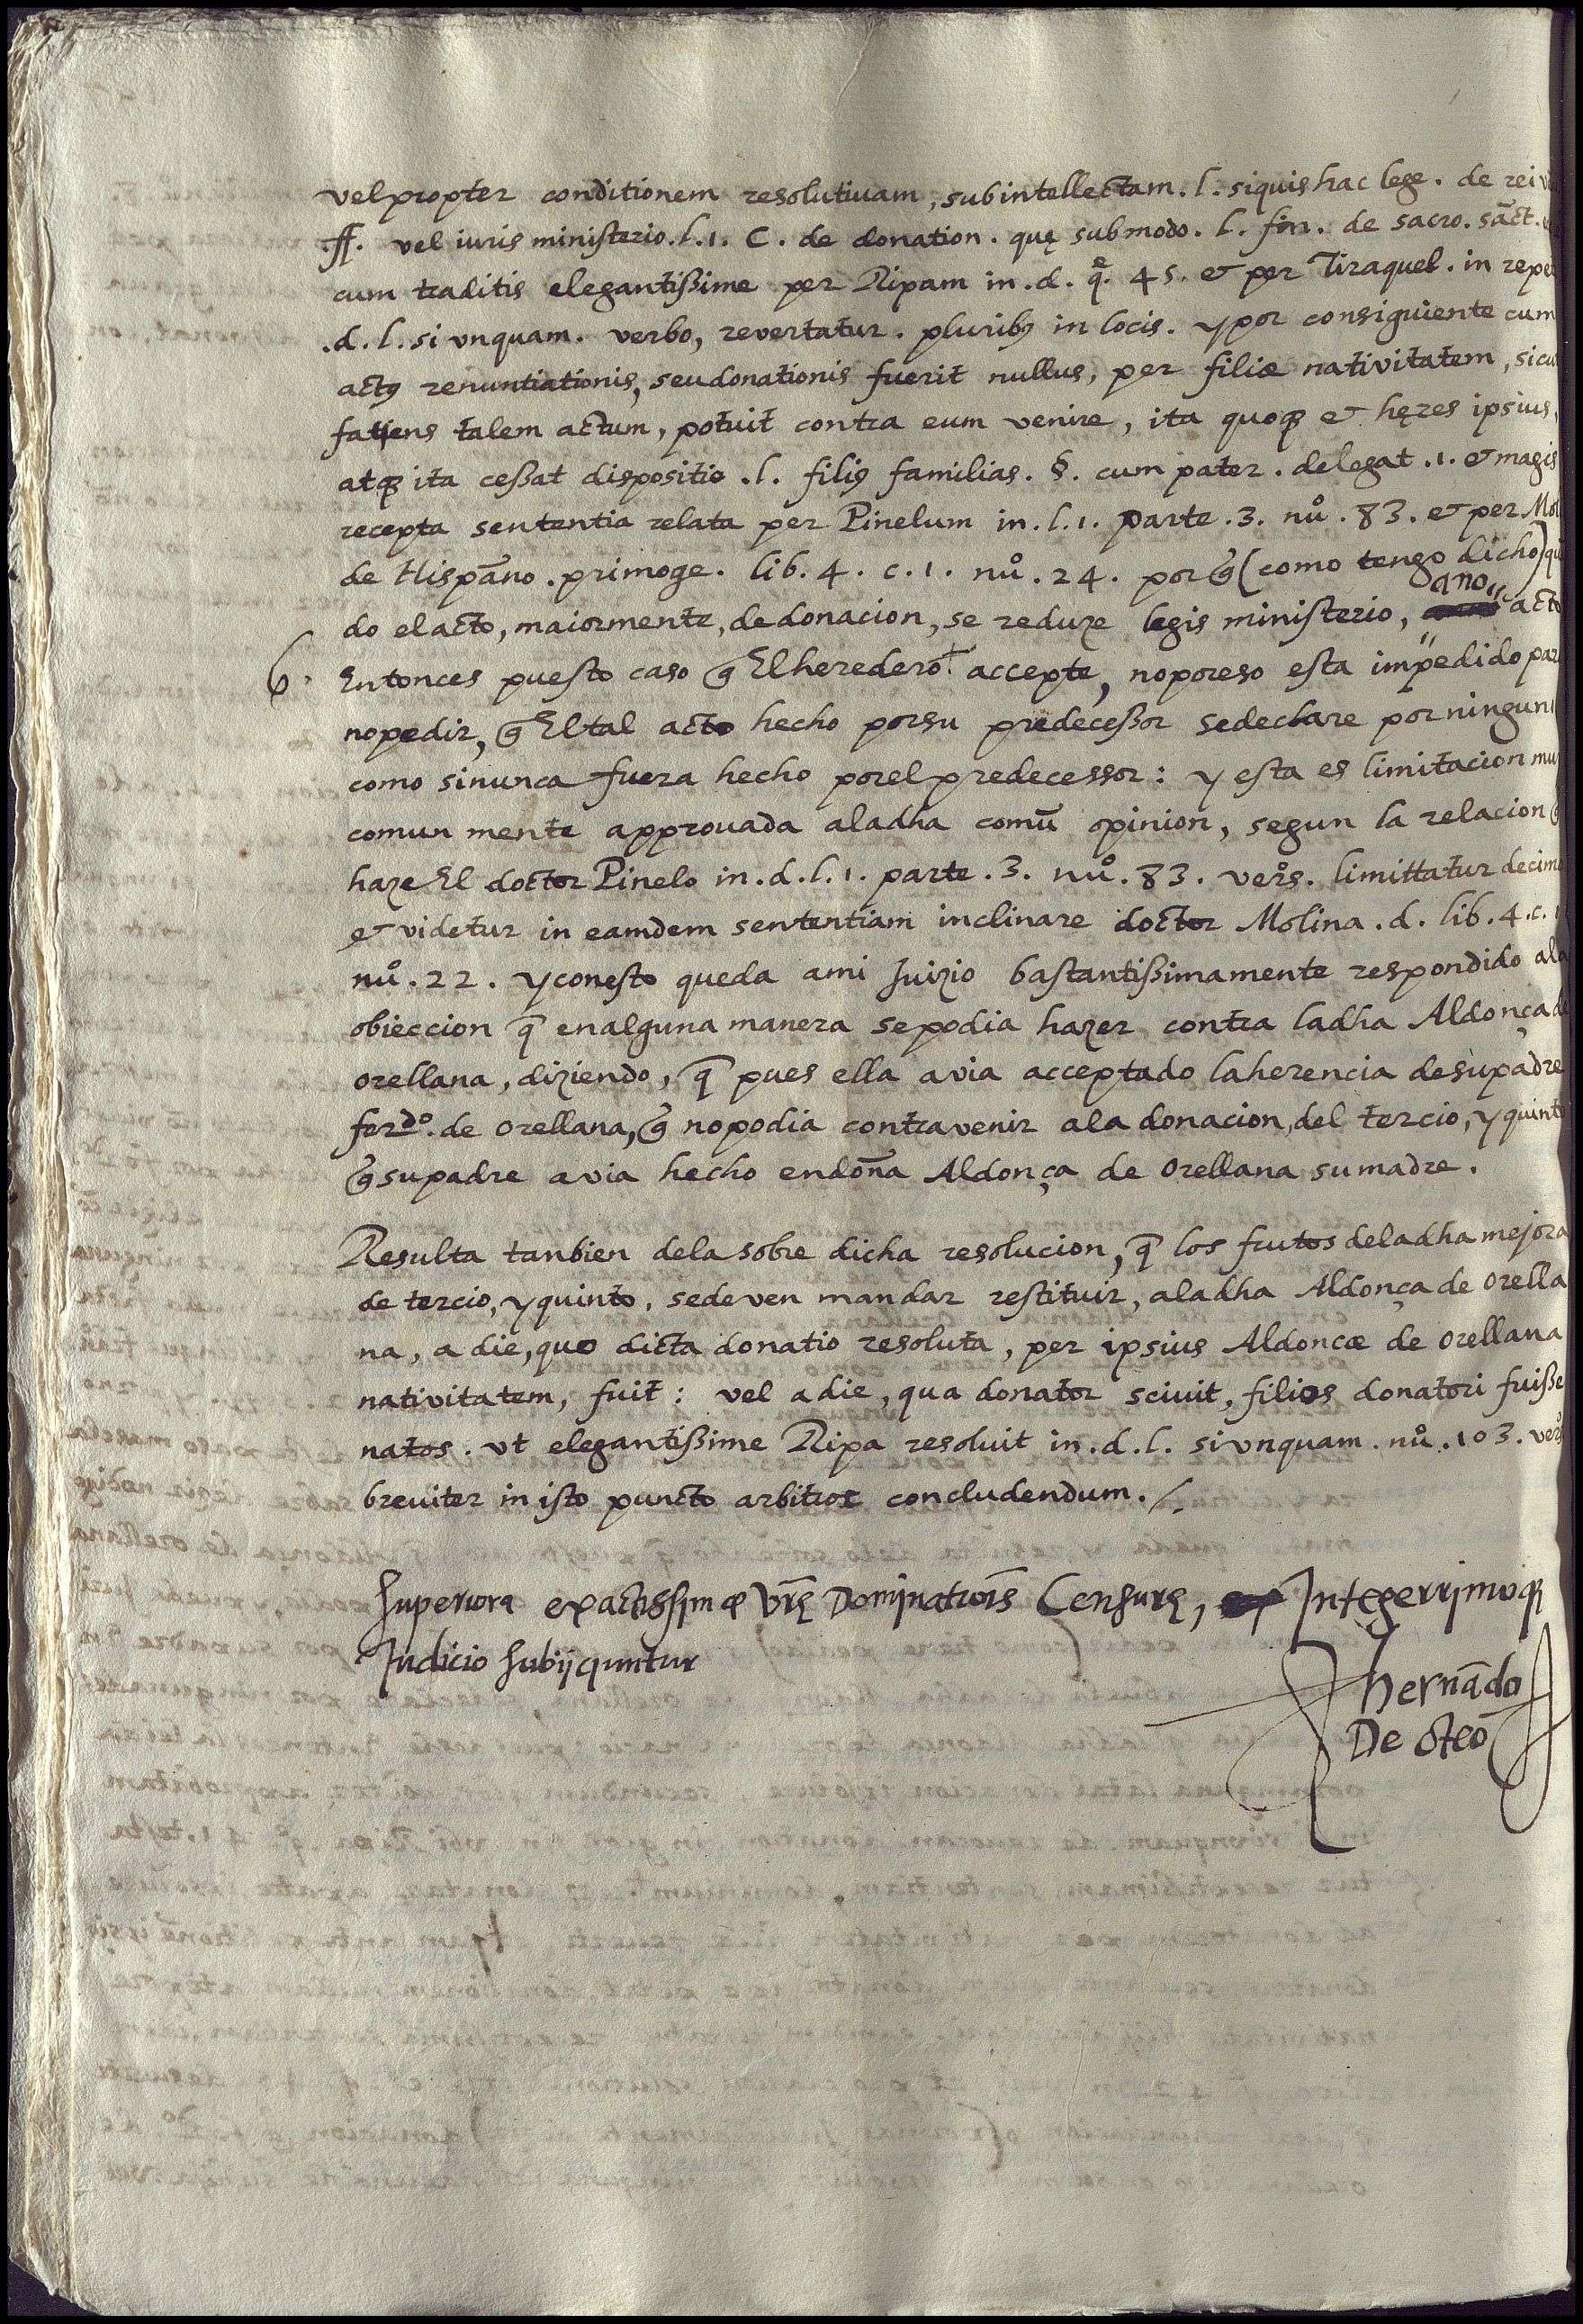 vel propter conditionem resolutiuam, subintellectam. l. siquis hac lege. de rei v
ff. vel iuris ministerio. l. 1. C. de donation. quę submodo. l. fin. de sacro. sāct.
cum traditis elegantißime per Ripam in. d. q̊. 45. & per Tiraquel. in repe
.d. l. si vnquam. verbo, revertatur. pluribꝰ in locis. y por consiguiente cum
actꝰ renuntiationis, seu donationis fuerit nullus, per filiæ nativitatem, sicu
fatiens talem actum, potuit contra eum venire, ita quoqꝫ & hęres ipsius,
atqꝫ ita ceßat dispositio .l. filiꝰ familias. §. cum pater. de legat. 1. & magis
recepta sententia relata per Pinelum in. l. 1. parte. 3. nů. 83. & per Mol
de Hispāno. primoge. lib. 4. c. 1. nů. 24. por q̃ (como tengo dicho) qu
do el acto, maiormente, de donacion, se reduze legis ministerio, ano acto
6. Entonces puesto caso q̃ El heredero accepte, no por eso esta impedido par
no pedir, q̃ El tal acto hecho por su predeceßor se declare por ningun
como si nunca fuera hecho por el predecessor: y esta es limitacion mu
comun mente approuada a la dha comū opinion, segun la relacion q̃
haze El doctor Pinelo in. d. l. 1. parte. 3. nů. 83. vers̊. limittatur decim
& videtur in eamdem sententiam inclinare doctor Molina. d. lib. 4. c. 1
nů. 22. y con esto queda a mi Juizio bastantißimamente respondido a la
obieccion q̃ en alguna manera se podia hazer contra la dha Aldonça de
orellana, diziendo, q̃ pues ella avia acceptado la herencia de su padre
ferdo. de orellana, q̃ no podia contravenir a la donacion, del tercio, y quinto
q̃ su padre avia hecho en doña Aldonça de orellana su madre.
Resulta tanbien de la sobre dicha resolucion, q̃ los frutos de la dha mejora
de tercio, y quinto, se deven mandar restituir, a la dha Aldonça de orella
na, a die, quo dicta donatio resoluta, per ipsius Aldoncæ de orellana
nativitatem, fuit: vel a die, qua donator sciuit, filios donatori fuiße
natos. vt elegantißime Ripa resoluit in. d. l. si vnquam. nů. 103. vers̊
breuiter in isto puncto arbitror concludendum.
Superiora exactissimæ Vrę Dominationis Censurę, Integerrimoqꝫ
Judicio subijcuntur
hernādo
De oteo